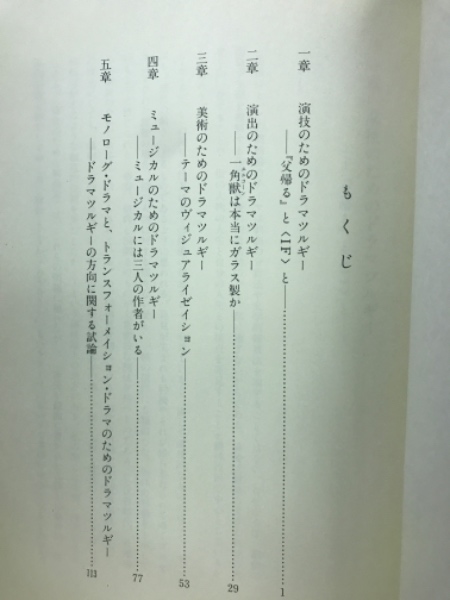 もくじ
一章　演技のためのドラマツルギー
――『父帰る』と〈IF〉と――…………1
二章　演出のためのドラマツルギー
――一角獣は本当にガラス製か――…………29
三章　美術のためのドラマツルギー
――テーマのヴィジュアライゼイション――…………53
四章　ミュージカルのためのドラマツルギー
――ミュージカルには三人の作者がいる――…………77
五章　モノローグ・ドラマと、トランスフォーメイション・ドラマのためのドラマツルギー
――ドラマツルギーの方向に関する試論――…………113